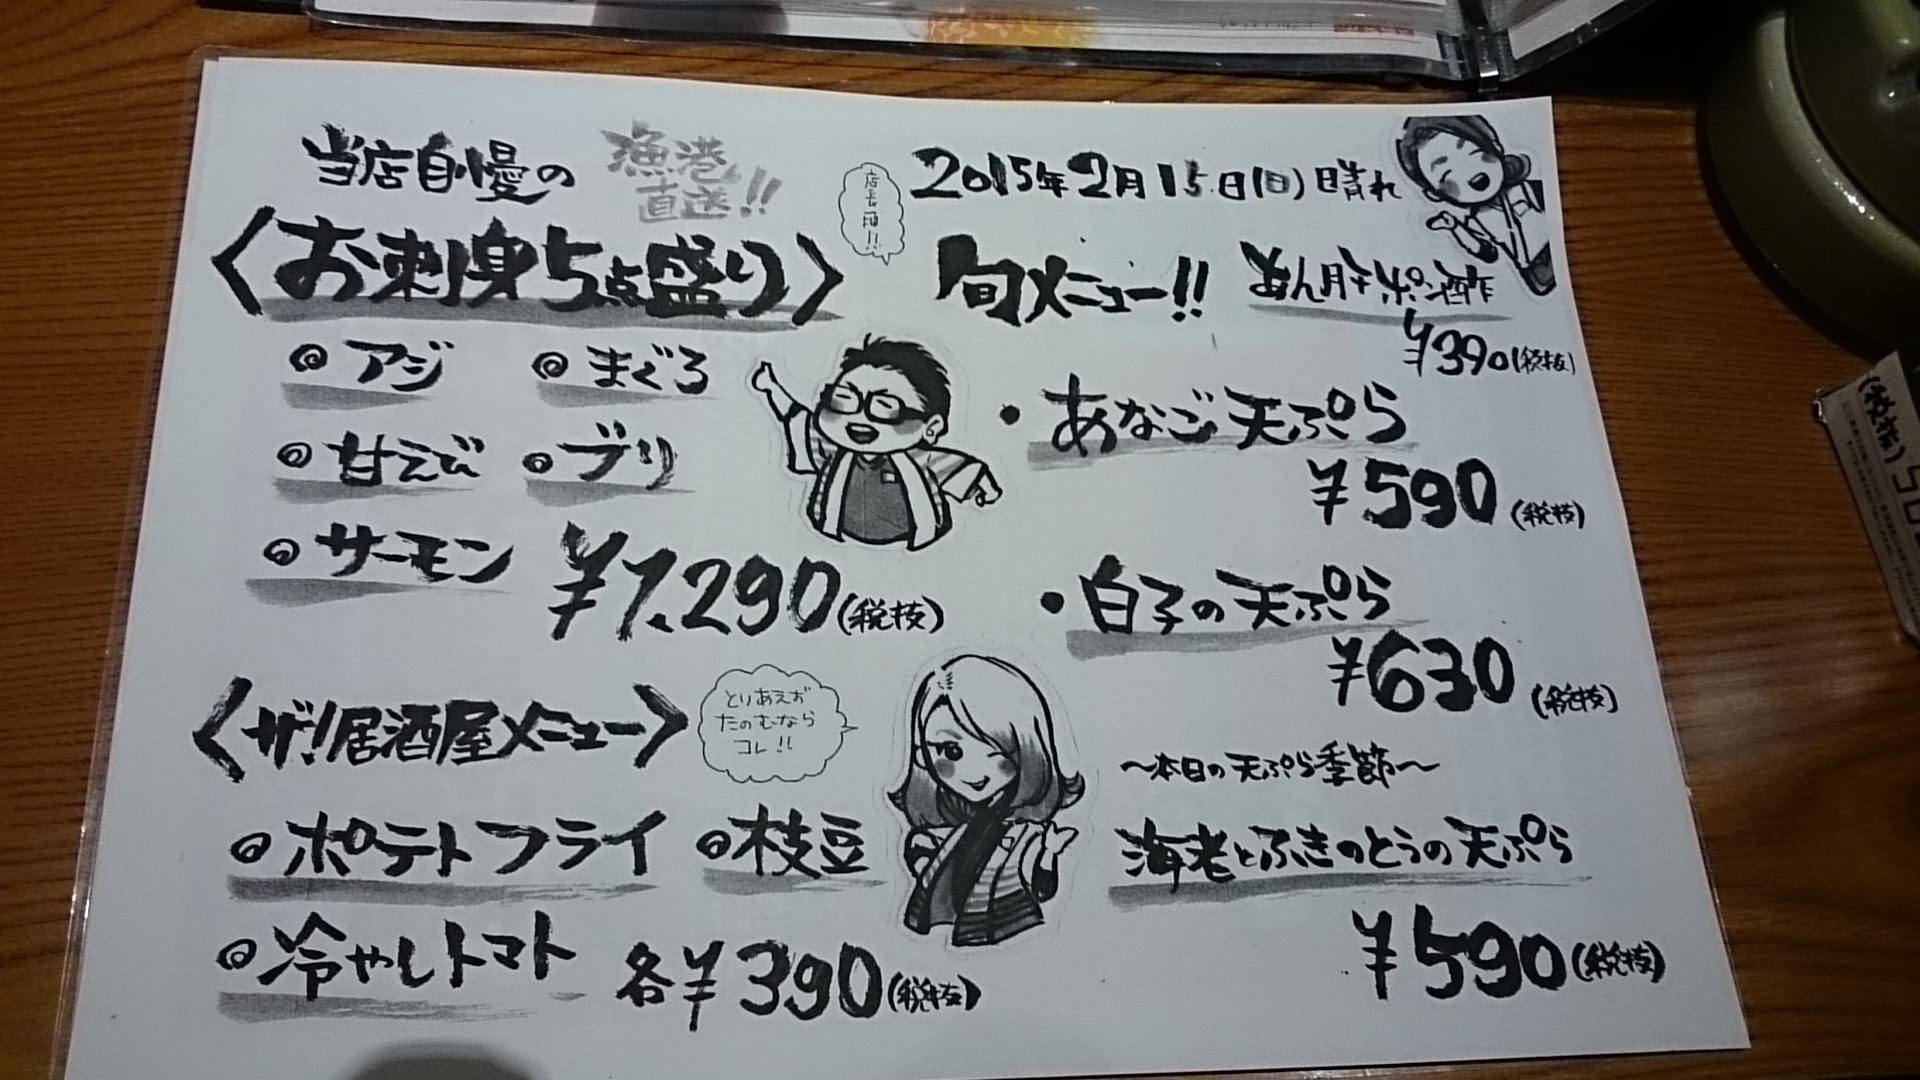 当店自慢の
漁港
直送!!
〈お刺身5点盛り〉
◎アジ ◎まぐろ
◎甘えび ◎ブリ
◎サーモン ¥1.290(税抜)
〈ザ!居酒屋メニュー〉
とりあえず
たのむなら
コレ!!
◎ポテトフライ ◎枝豆
◎冷やしトマト 各¥390(税抜)
2015年2月15日(日)晴れ
旬メニュー!! あん肝ポン酢
¥390(税抜)
・あなご天ぷら
¥590(税抜)
・白子の天ぷら
¥630(税抜)
〜本日の天ぷら季節〜
海老とふきのとうの天ぷら
¥590(税抜)